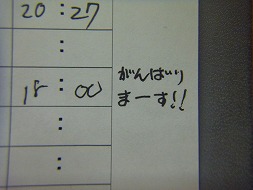 20:27
:
18:00
:
:
がんばり
まーす!!